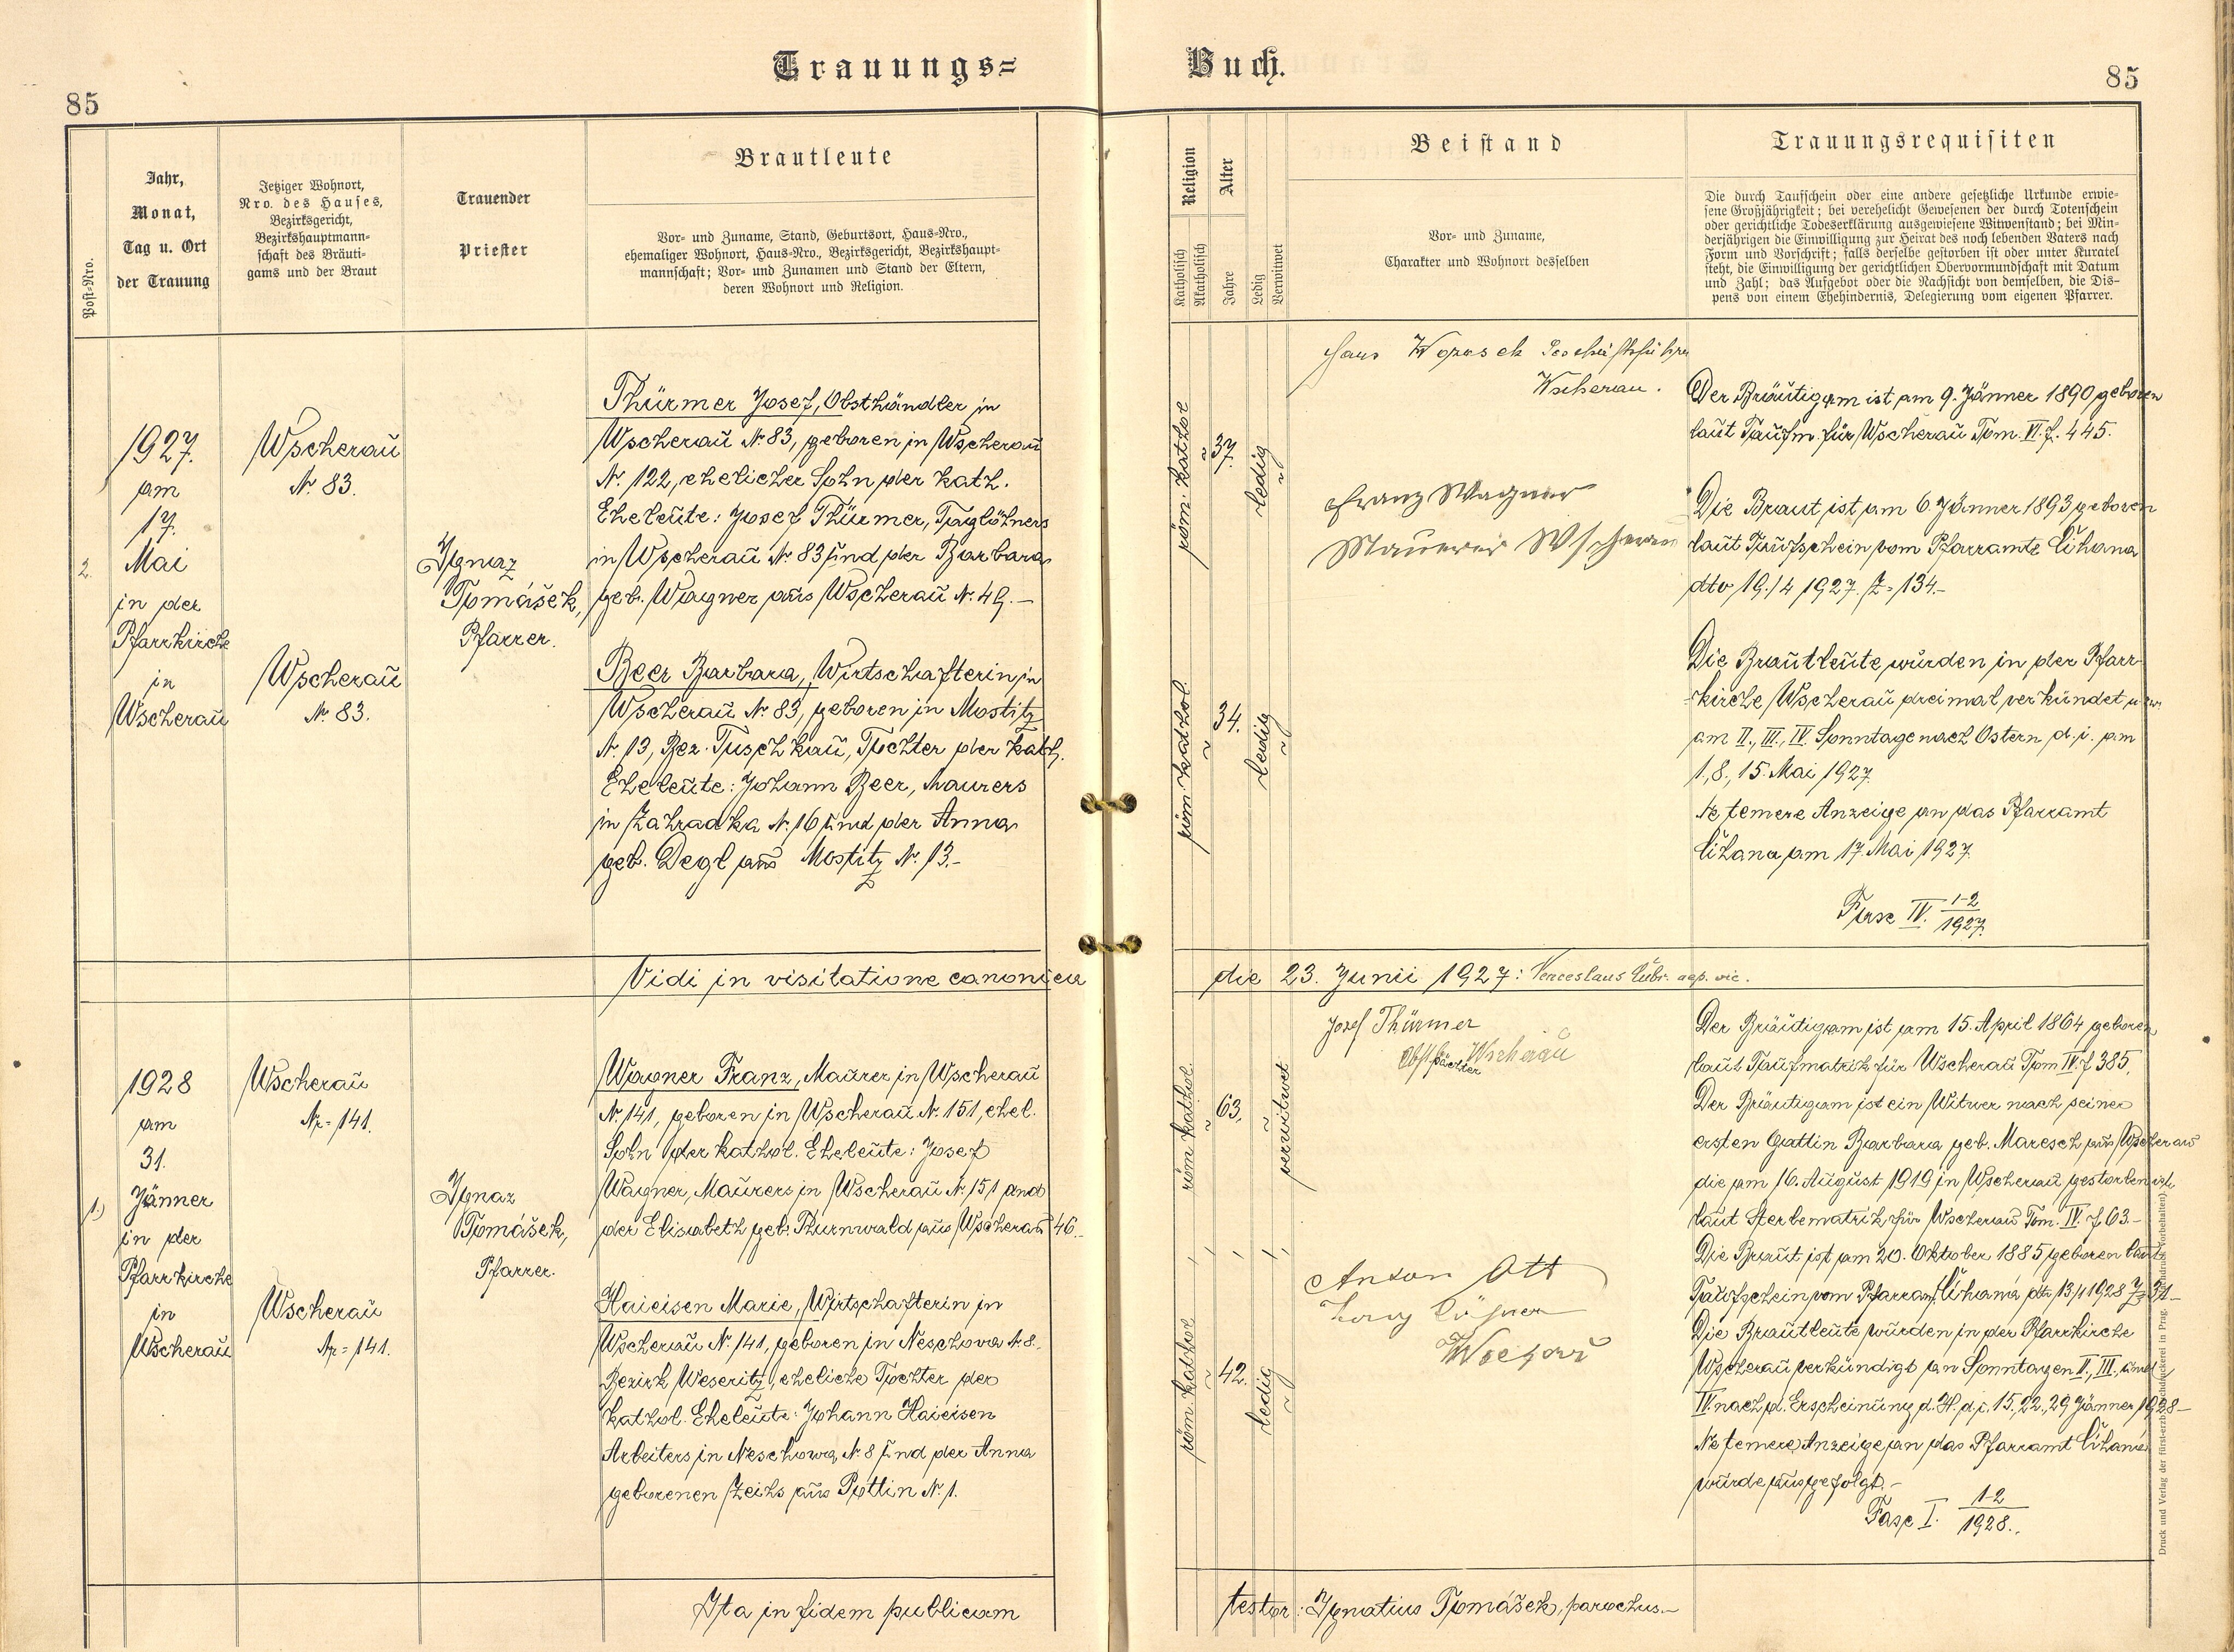 Trauungs=
Buch.
85
85
Post-Nro.
Jahr,
Monat,
Tag u. Ort
der Trauung
Jetziger Wohnort,
Nro. des Hauses,
Bezirksgericht,
Bezirkshauptmann-
schaft des Bräuti-
gams und der Braut
Trauender
Priester
Brautleute
Vor- und Zuname, Stand, Geburtsort, Haus-Nro.,
ehemaliger Wohnort, Haus-Nro., Bezirksgericht, Bezirkshaupt-
mannschaft; Vor- und Zunamen und Stand der Eltern,
deren Wohnort und Religion.
Religion
Katholisch
Akatholisch
Alter
Jahre
Ledig
Verwitwet
Beistand
Vor- und Zuname,
Charakter und Wohnort desselben
Trauungsrequisiten
Die durch Taufschein oder eine andere gesetzliche Urkunde erwie-
sene Großjährigkeit; bei verehelicht Gewesenen der durch Totenschein
oder gerichtliche Todeserklärung ausgewiesene Witwenstand; bei Min-
derjährigen die Einwilligung zur Heirat des noch lebenden Vaters nach
Form und Vorschrift; falls derselbe gestorben ist oder unter Kuratel
steht, die Einwilligung der gerichtlichen Obervormundschaft mit Datum
und Zahl; das Aufgebot oder die Nachsicht von demselben, die Dis-
pens von einem Ehehindernis, Delegierung vom eigenen Pfarrer.
2.
1927.
am
17.
Mai
in der
Pfarrkirche
in
Wscherau
Wscherau
Nr. 83.
Wscherau
Nr. 83.
Ignaz
Tomášek,
Pfarrer.
Thürmer Josef, Obsthändler in
Wscherau Nr. 83, geboren in Wscherau
Nr. 122, ehelicher Sohn der kath.
Eheleute: Josef Thürmer, Taglöhners
in Wscherau Nr. 83 und der Barbara
geb. Wagner aus Wscherau Nr. 49.-
Beer Barbara, Wirtschafterin in
Wscherau Nr. 83, geboren in Mostitz
Nr. 13, Bez. Tuschkau, Tochter der kath.
Eheleute: Johann Beer, Maurers
in Zahradka Nr. 16 und der Anna
geb. Degl aus Mostitz Nr. 13.-
röm. kathol
37.
ledig
röm. kathol.
34.
ledig
Hans Geschäftsführer
Wscherau.
Franz Wagner
Maurer Wscherau
Der Bräutigam ist am 9. Jänner 1890 geboren
laut Taufm. für Wscherau Tom. VI. f. 445.
Die Braut ist am 6. Jänner 1893 geboren
laut Taufschein vom Pfarramte Čihana
dto 19./4 1927. Z = 134.-
Die Brautleute wurden in der Pfarr-
kirche Wscherau dreimal verkündet u. zw.
am II., III., IV. Sonntage nach Ostern d. i. am
1., 8., 15. Mai 1927.
Ne temere Anzeige an das Pfarramt
Čihana am 17. Mai 1927.
Fasc IV. 1-2
1927.
Vidi in visitatione canonica
die 23. Junii 1927: Venceslaus vic.
1.)
1928
am
31.
Jänner
in der
Pfarrkirche
in
Wscherau
Wscherau
Nr = 141.
Wscherau
Nr = 141.
Ignaz
Tomášek,
Pfarrer.
Wagner Franz, Maurer in Wscherau
Nr. 141, geboren in Wscherau Nr. 151, ehel.
Sohn der kathol. Eheleute: Josef
Wagner, Maurers in Wscherau Nr. 151 und
der Elisabeth geb. Thurnwald aus Wscherau 46.-
Haieisen Marie, Wirtschafterin in
Wscherau Nr. 141, geboren in Neschova Nr. 8.
Bezirk Weseritz, eheliche Tochter der
kathol. Eheleute: Johann Haieisen
Arbeiters in Neschowa Nr. 8 und der Anna
geborenen Zeihs aus Pottin Nr. 1.
röm kathol.
63.
verwitwet
röm. kathol
42.
ledig
Josef Thürmer
Obstpächter Wscherau
Anton Ott
Der Bräutigam ist am 15. April 1864 geboren
laut Taufmatrik für Wscherau Tom IV. f 385.
Der Bräutigam ist ein Witwer nach seiner
ersten Gattin Barbara geb. Maresch aus Wscherau
die am 16. August 1919 in Wscherau gestorben ist
laut Sterbematrik für Wscherau Tom. IV. f 63.-
Die Braut ist am 20. Oktober 1885 geboren laut
Taufschein vom Pfarramt Čihana dto 13/1 1928 Z= 31.-
Die Brautleute wurden in der Pfarrkirche
Wscherau verkündigt an Sonntagen II., III., und
IV. nach d. Erscheinung d. H. d. i. 15., 22., 29 Jänner 1928-
Ne temere Anzeige an das Pfarramt Čihana
wurde ausgefolgt.-
Fasc I. 1-2
1928.
Ita in fidem publicam
testor: Ignatius Tomášek, parochus.-